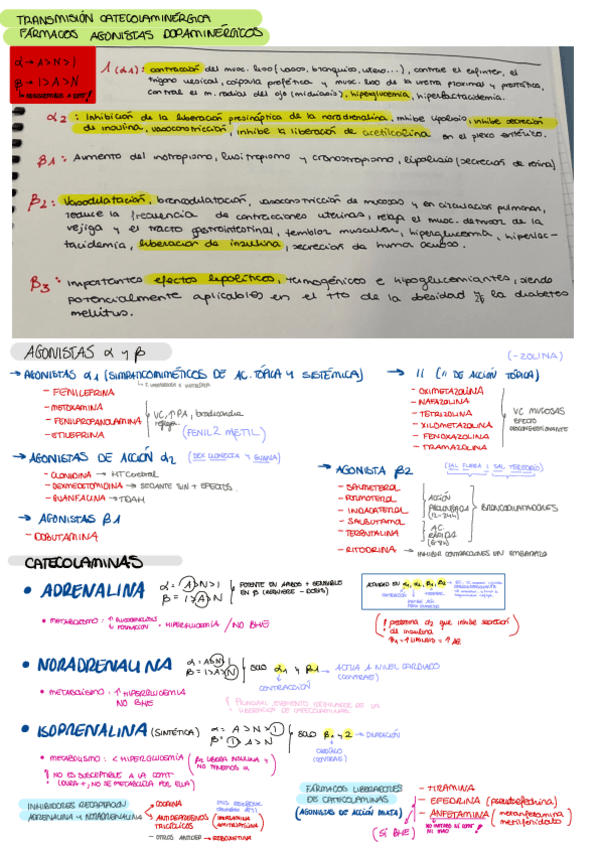 TRANSMISIÓN CATECOLAMINÉRGICA
FÁRMACOS AGONISTAS DOPAMINÉRGICOS
α → A>N>I
β → I>A>N
1 (α1): contracción del musc. liso (vasos, bronquios, utero...), contrae el esfinter, el
trigono vesical, cápsula prostática y musc. liso de la uretra proximal y prostática,
contrae el m. radial del ojo (midriasis), hiperglucemia, hiperlactacidemia.
α2: Inhibición de la liberación presináptica de la noradrenalina, inhibe lipolisis, inhibe secreción
de insulina, vasoconstricción, inhibe la liberación de acetilcolina en el plexo entérico.
β1: Aumento del inotropismo, lusitropismo y cronotropismo, lipolisis (secreción de renina)
β2: Vasodilatación, broncodilatación, vasoconstricción de mucosas y en circulación pulmonar,
reduce la frecuencia de contracciones uterinas, relaja el musc. detrusor de la
vejiga y el tracto gastrointestinal, temblor muscular, hiperglucemia, hiperlac-
tacidemia, liberación de insulina, secreción de humor acuoso.
β3: Importantes efectos lipolíticos, termogénicos e hipoglucemiantes, siendo
potencialmente aplicables en el tto de la obesidad y la diabetes
mellitus.
AGONISTAS α y β
(-ZOLINA)
→ AGONISTAS α1 (SIMPATICOMIMÉTICOS DE AC. TÓPICA Y SISTÉMICA)
→ 11 (" DE ACCIÓN TÓPICA)
- FENILEFRINA
- METOXAMINA
- FENILPROPANOLAMINA
- ETILEFRINA
VC, ↑PA, bradicardia
refleja
(FENIL 2 METIL)
- OXIMETAZOLINA
- NAFAZOLINA
- TETRIZOLINA
- XILOMETAZOLINA
- FENOXAZOLINA
- TRAMAZOLINA
VC MUCOSAS
EFECTO
DESCONGESTIONANTE
→ AGONISTAS DE ACCIÓN α2 (DEX CLONIDITA Y GUANFA)
- CLONIDINA → HT cerebral
- DEXMEDETOMIDINA → SEDANTE + EFECTOS
- GUANFACINA → TDAH
→ AGONISTAS β1
- DOBUTAMINA
→ AGONISTA β2
- SALMETEROL
- FORMOTEROL
- INDACATEROL
- SALBUTAMOL
- TERBUTALINA
- RITODRINA → INHIBIR CONTRACCIONES EN EMBARAZO
ACCIÓN
PROLONGADA
(12-24h)
AC.
RÁPIDA
BRONCODILATADORES
CATECOLAMINAS
• ADRENALINA
α = A>N>I
β = I>A>N
POTENTE EN AMBOS + SENSIBLE
EN β (REQUIERE - DOSIS)
• METABOLISMO:
= HIPERGLUCEMIA / NO BHE
(! predomina α2 que inhibe secreción
de insulina
• NORADRENALINA
α = A>N>I
β = I>A>N
SOLO α1 y β1 → ACTÚA A NIVEL CARDIACO
(CONTRAE)
CONTRACCIÓN
• METABOLISMO: ↑ HIPERGLUCEMIA
NO BHE
• ISOPRENALINA (SINTÉTICA)
α = A>N>I
β = I>A>N
SOLO β1 y 2 → DILATACIÓN
(CONTRAE)
• METABOLISMO: < HIPERGLUCEMIA (β2 LIBERA INSULINA Y
NO TENEMOS α
! NO ES SUSCEPTIBLE A LA COMT
(DURA +, NO SE METABOLIZA POR ELLA)
INHIBIDORES RECAPTACIÓN
ADRENALINA Y NORADRENALINA
COCAÍNA
ANTIDEPRESIVOS
TRICÍCLICOS
IMIPRAMINA
AMITRIPTILINA
- OTROS ANTIDEP → REBOXETINA
FÁRMACOS LIBERADORES
DE CATECOLAMINAS
(AGONISTAS DE ACCIÓN MIXTA)
(SÍ BHE)
- TIRAMINA
- EFEDRINA (pseudoefedrina)
- ANFETAMINA (metanfetamina
metilfenidato)